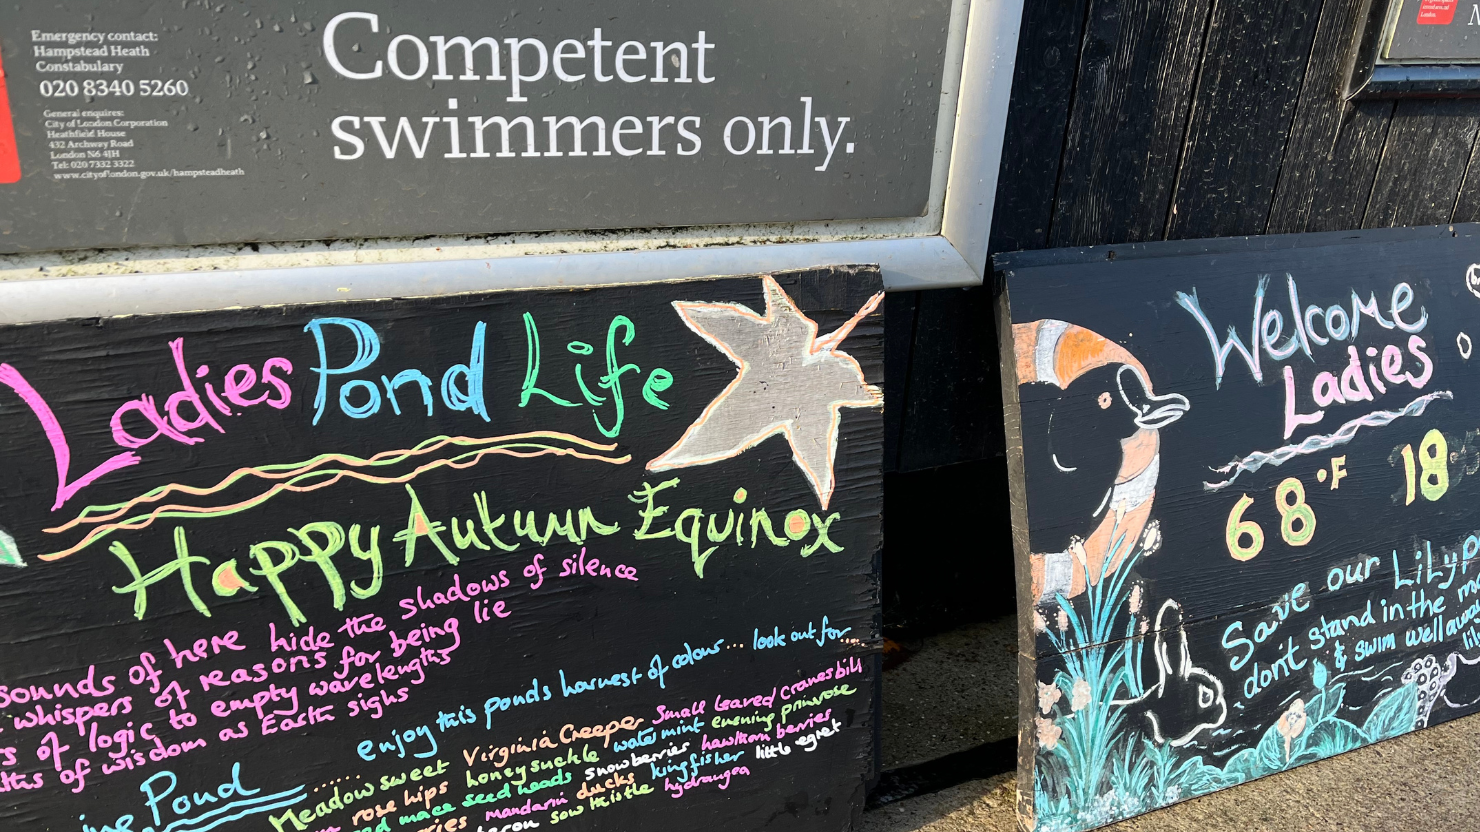 Emergency contact:
Hampstead Heath
Constabulary
020 8340 5260
General enquires:
City of London Corporation
Heathfield House
432 Archway Road
London N6 4JH
Tel: 020 7332 3322
www.cityoflondon.gov.uk/hampsteadheath
Competent
swimmers only.
Ladies Pond Life
Happy Autumn Equinox
sounds of here hide the shadows of silence
whispers of reasons for being lie
of logic to empty wavelengths
of wisdom as Earth sighs
enjoy this ponds harvest of colour... look out for...
Pond
Meadowsweet Virginia Creeper Small leaved cranesbill
rose hips honeysuckle watermint evening primrose
mace seed heads snowberries hawthorn berries
mandarin ducks kingfisher little egret
sow thistle hydrangea
Welcome
Ladies
68°F 18
Save our Lily
don't stand in the
& swim well away